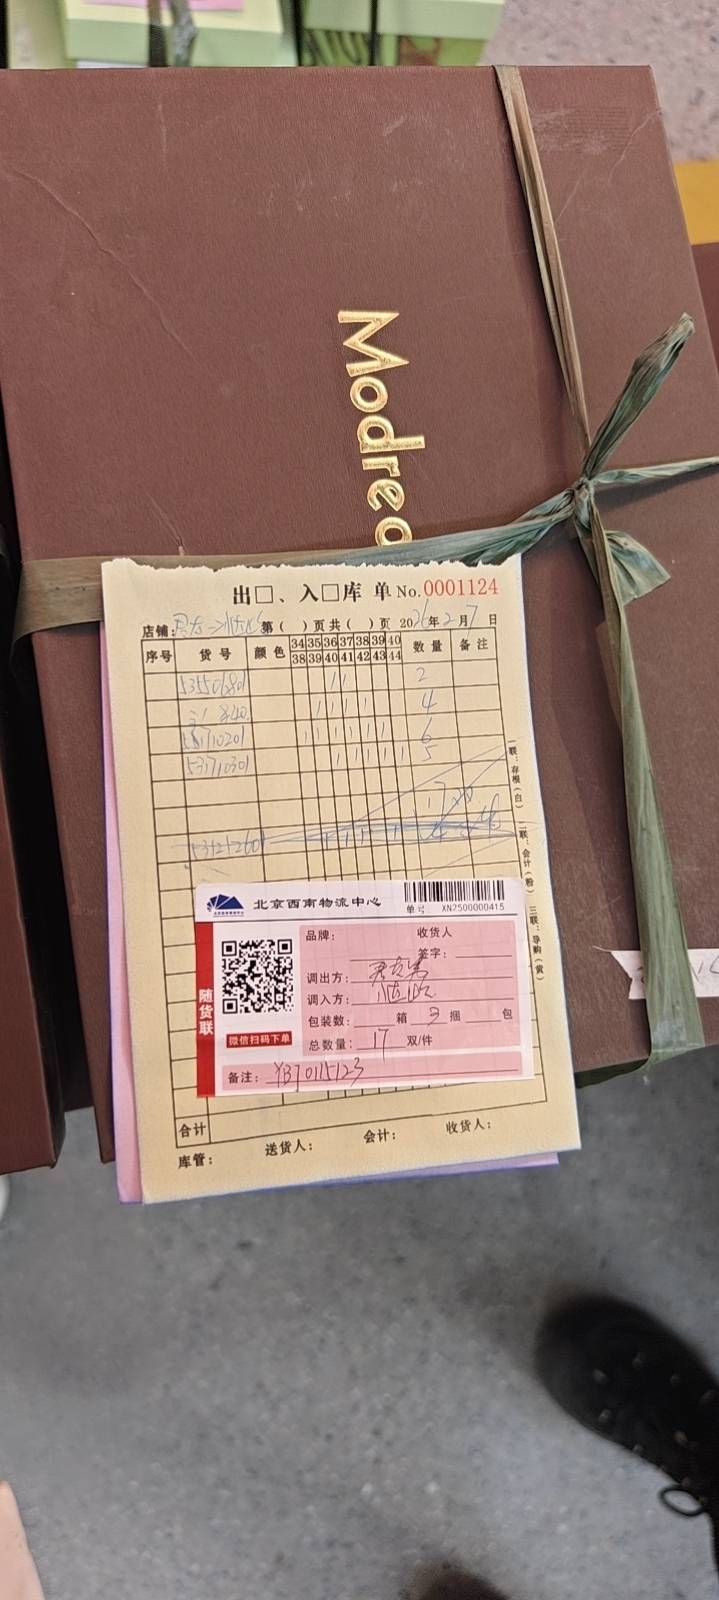 Modrec
出□、入□库 单 No.0001124
店铺: 第( )页共( )页 2026年2月7日
序号 货号 颜色 34 35 36 37 38 39 40 数量 备注
38 39 40 41 42 43 44
535506801 1 1 2
1 1 1 1 4
1 1 1 1 1 1 6
531710301 1 1 1 1 1 5
17
531212601
一联:存根(白) 二联:会计(粉) 三联:导购(黄)
北京西南物流中心
单号: XN2500000415
随货联
微信扫码下单
品牌: 收货人
签字:
调出方:
调入方:
包装数: 箱 3 捆 包
总数量: 17 双/件
备注: YB70115123
合计
库管: 送货人: 会计: 收货人: